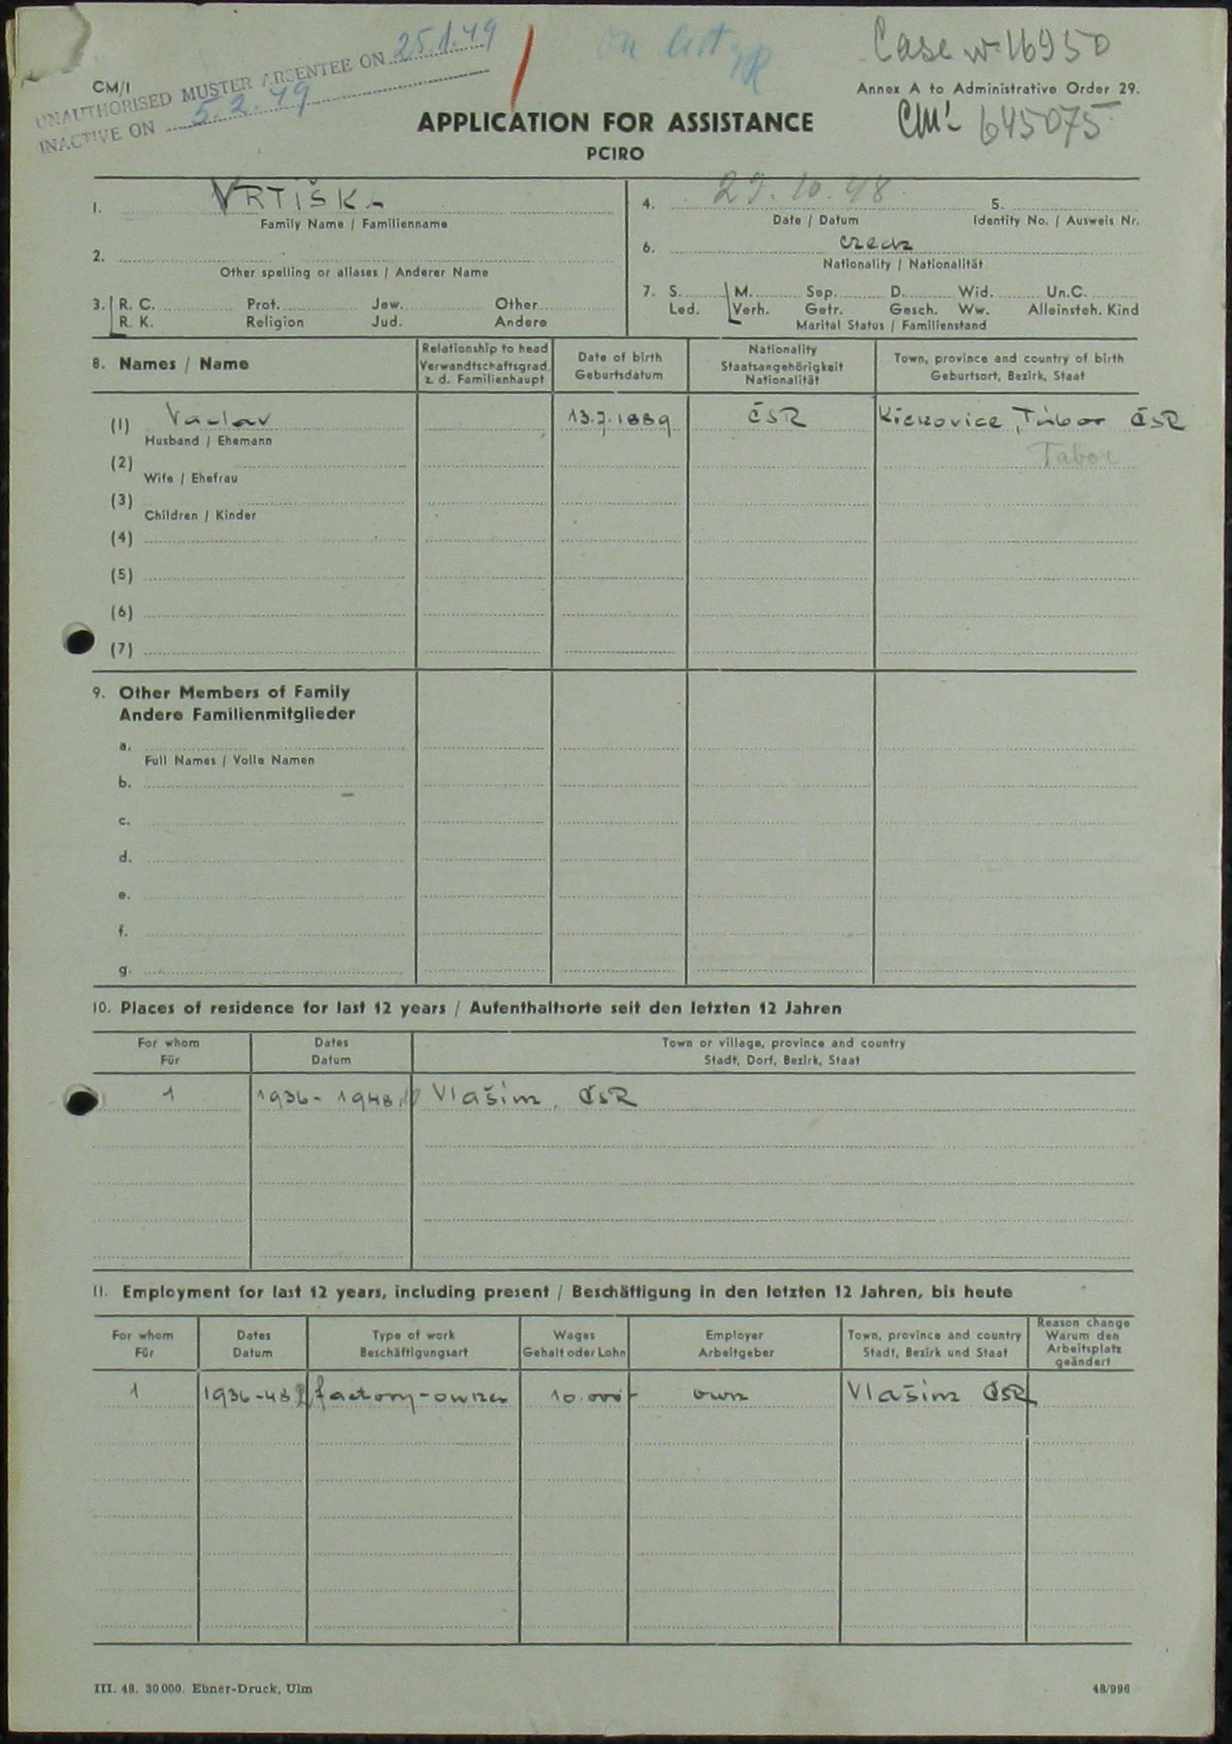 CM/1
UNAUTHORISED MUSTER ABSENTEE ON 25.1.49
INACTIVE ON 5.2.49
on list
Case No 16950
Annex A to Administrative Order 29.
CM1 645075
APPLICATION FOR ASSISTANCE
PCIRO
1. VRTIŠKA
Family Name / Familienname
2.
Other spelling or aliases / Anderer Name
3. R. C. Prot. Jew. Other
R. K. Religion Jud. Andere
4. 29.10.48 5.
Date / Datum Identity No. / Ausweis Nr.
6. czech
Nationality / Nationalität
7. S. M. Sep. D. Wid. Un.C.
Led. Verh. Getr. Gesch. Ww. Alleinsteh. Kind
Marital Status / Familienstand
8. Names / Name
Relationship to head
Verwandtschaftsgrad
z. d. Familienhaupt
Date of birth
Geburtsdatum
Nationality
Staatsangehörigkeit
Nationalität
Town, province and country of birth
Geburtsort, Bezirk, Staat
(1) Vaclav 13.7.1889 ČSR Tábor ČSR
Husband / Ehemann
(2) Tabor
Wife / Ehefrau
(3)
Children / Kinder
(4)
(5)
(6)
(7)
9. Other Members of Family
Andere Familienmitglieder
a.
Full Names / Volle Namen
b.
c.
d.
e.
f.
g.
10. Places of residence for last 12 years / Aufenthaltsorte seit den letzten 12 Jahren
For whom
Für
Dates
Datum
Town or village, province and country
Stadt, Dorf, Bezirk, Staat
1 1936 - 1948 Vlašim, ČSR
11. Employment for last 12 years, including present / Beschäftigung in den letzten 12 Jahren, bis heute
For whom
Für
Dates
Datum
Type of work
Beschäftigungsart
Wages
Gehalt oder Lohn
Employer
Arbeitgeber
Town, province and country
Stadt, Bezirk und Staat
Reason change
Warum den
Arbeitsplatz
geändert
1 1936-48 factory-owner 10.000 own Vlašim ČSR
III. 48. 30 000. Ebner-Druck, Ulm
48/996